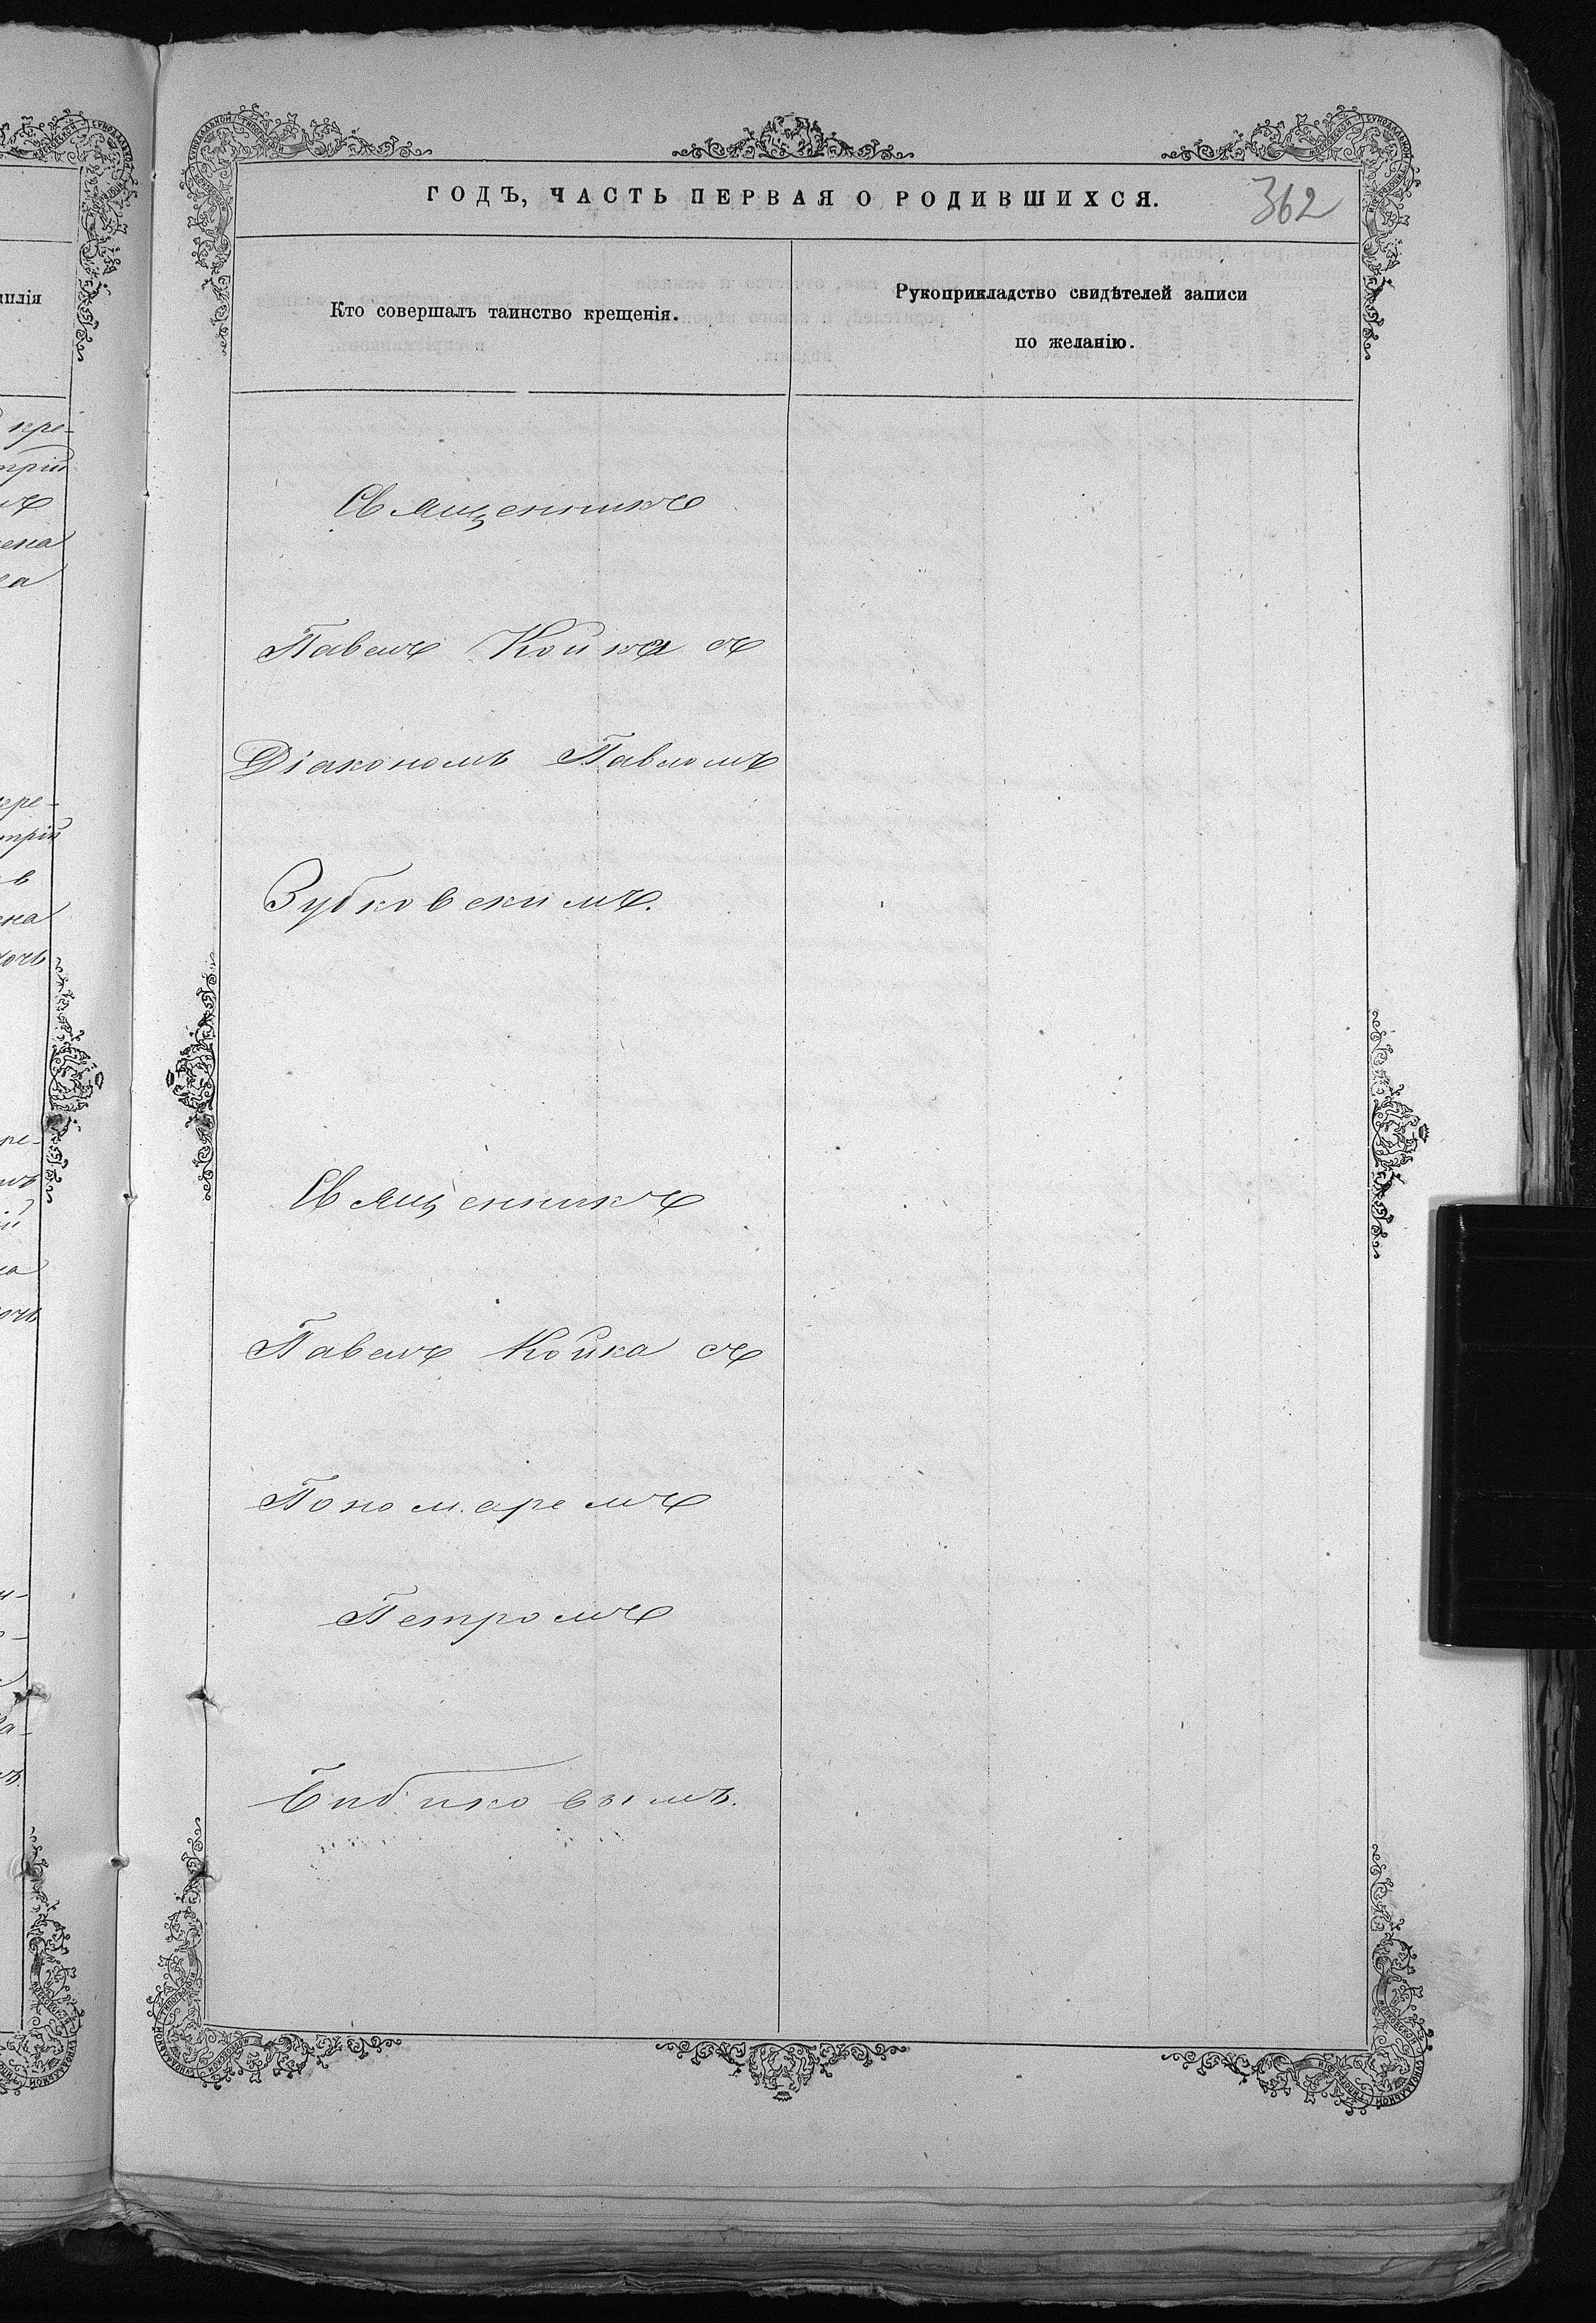 ГОДЪ, ЧАСТЬ ПЕРВАЯ О РОДИВШИХСЯ.
362
Кто совершалъ таинство крещенія.
Рукоприкладство свидѣтелей записи
по желанію.
Священникъ
Павелъ Койка съ
Діакономъ Павломъ
Зубковскимъ.
Священникъ
Павелъ Койка съ
Пономаремъ
Петромъ
Бибиковымъ.